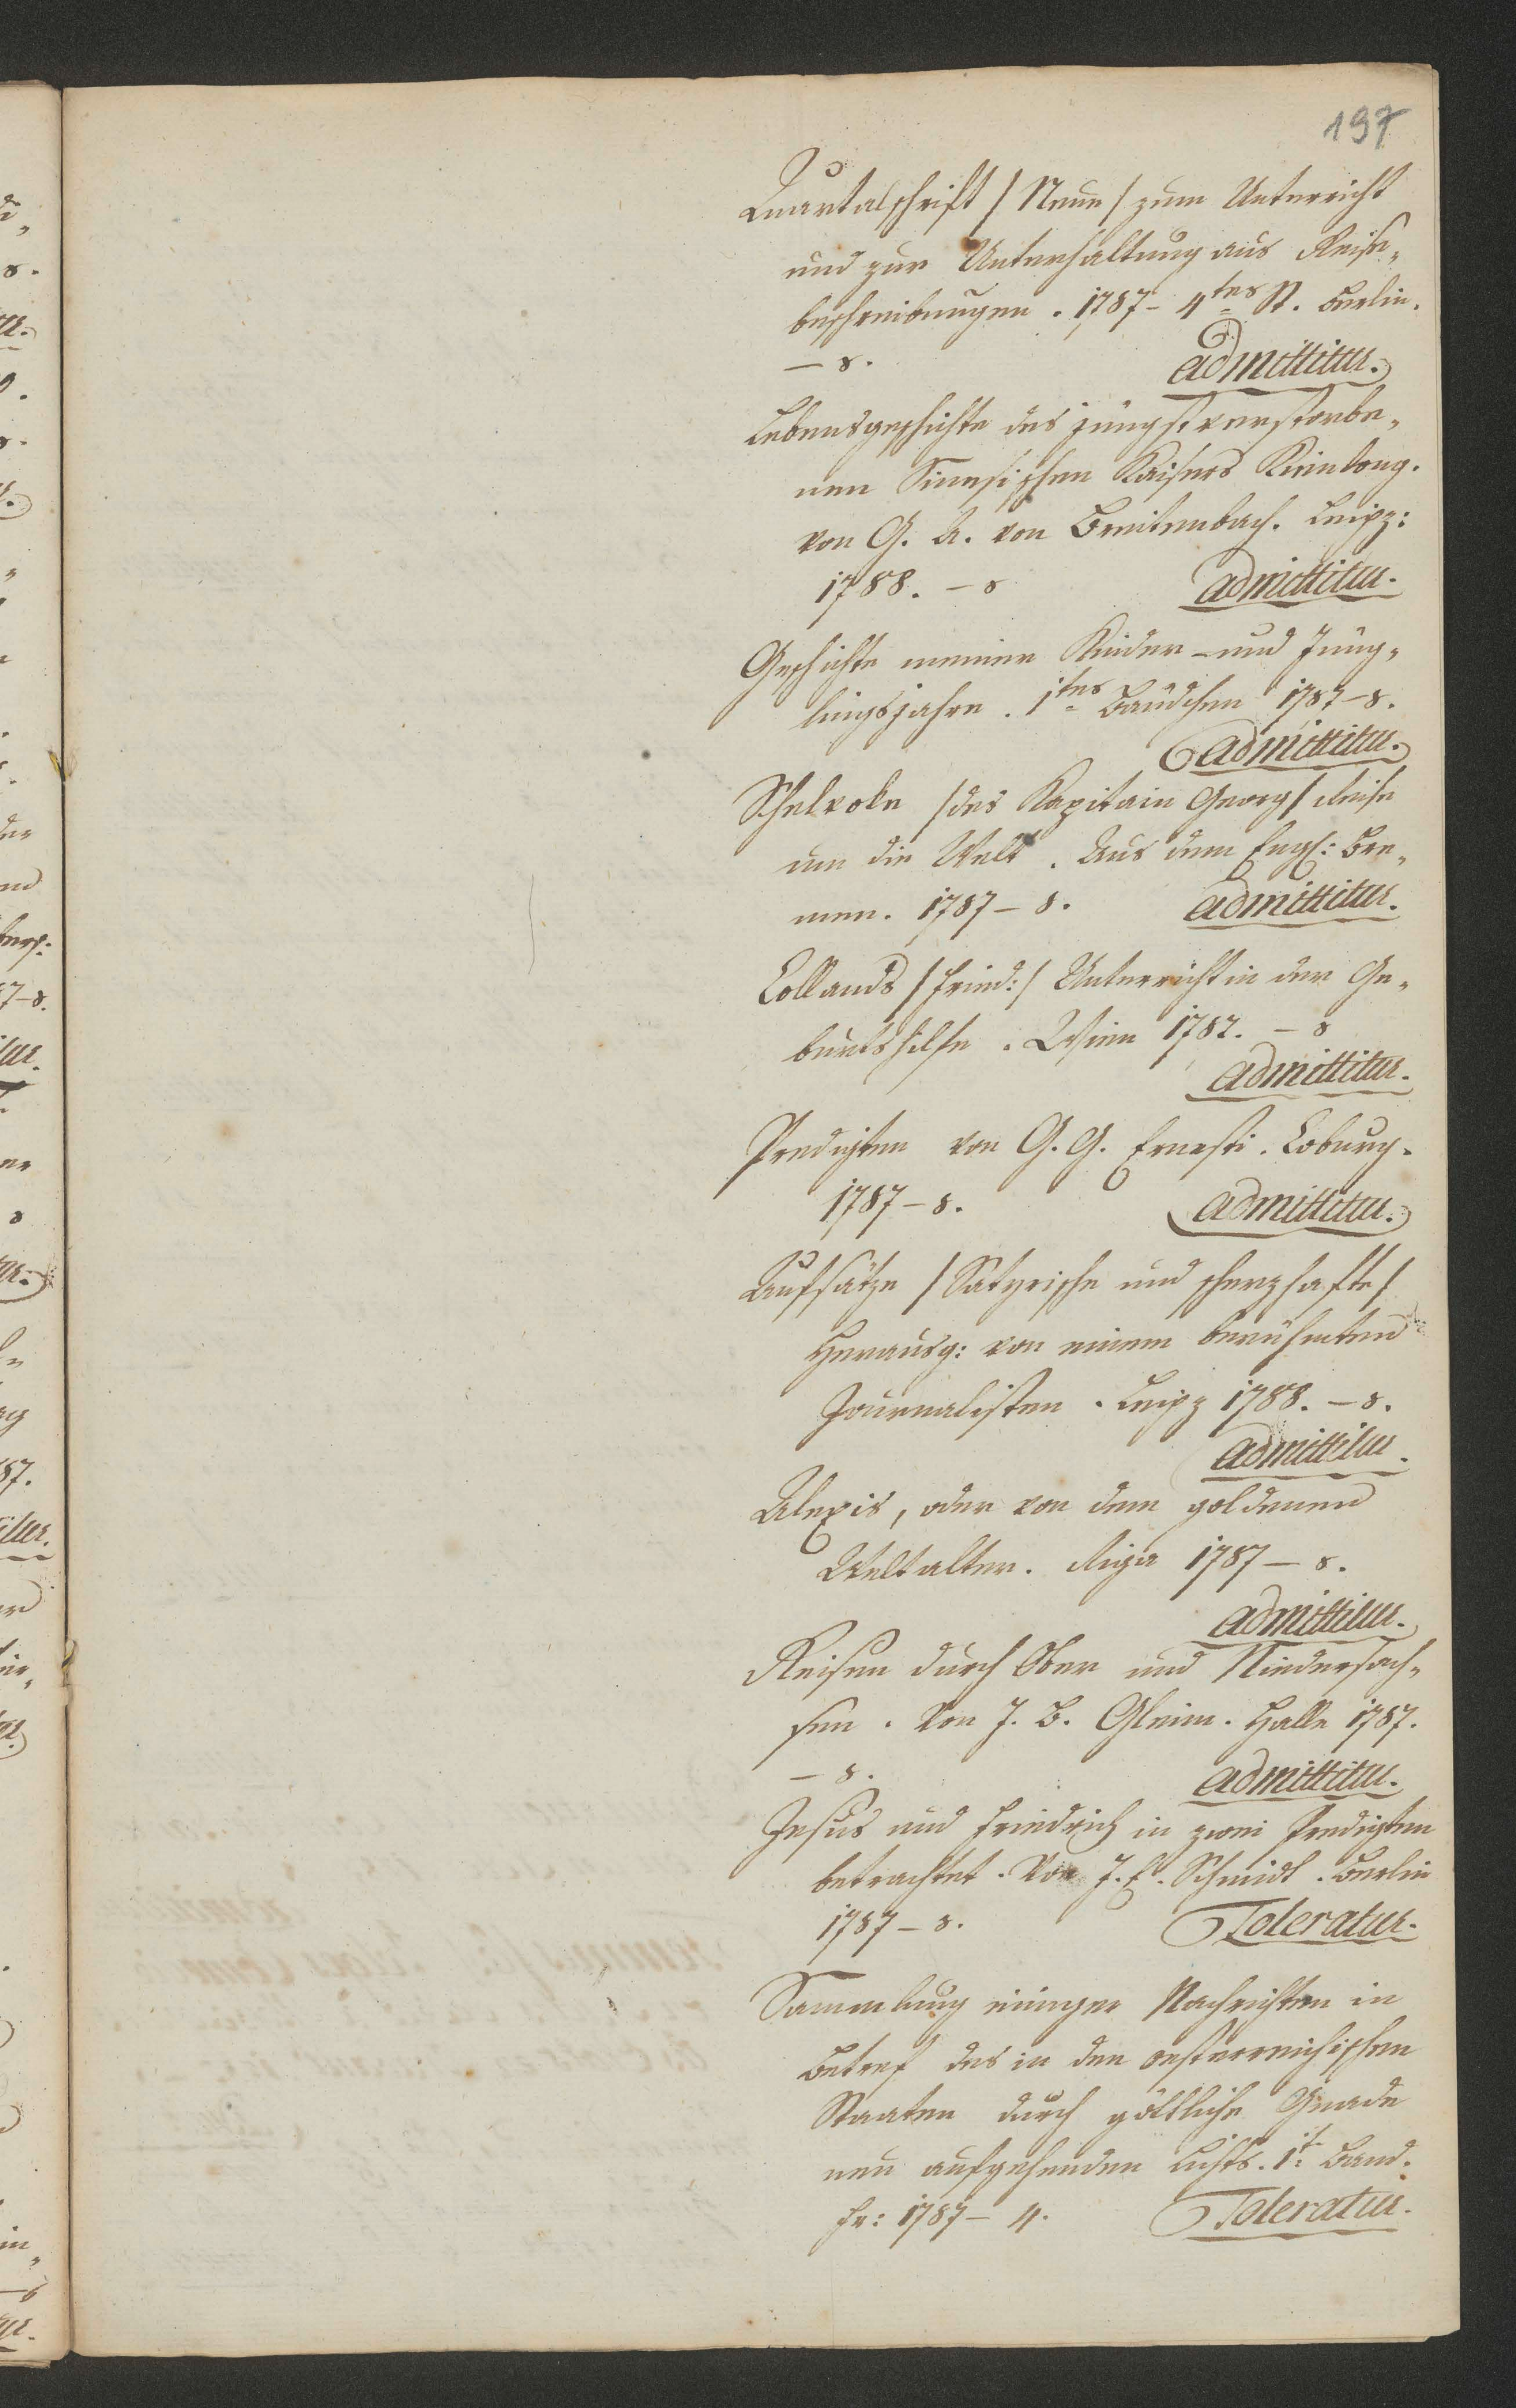 197
Quartalschrift /Neue/ zum Unterricht
und zur Unterhaltung aus Reise„
beschreibungen. 1787- 4tes St. Berlin.
– 8. admittitur.
Lebensgeschichte des jüngst verstorbe„
nen Sinesischen Kaisers Kienlong.
von G. A. von Breitenbach. Leipz:
1788. – 8 admittitur.
Geschichte meiner Kinder – und Jüng„
lingsjahre. 1tes Bändchen 1787–8.
admittitur.
Schelvoke /des Kapitain Georg/ Reise
um die Welt. Aus dem Engl: Bre„
men. 1787–8. admittitur.
Collands /Fried:/ Unterricht in der Ge„
burtshilfe. Wien 1787. – 8
admittitur.
Predigten von G. G. Ernesti. Coburg.
1787–8. admittitur.
Aufsätze /Satyrische und scherzhafte/
Herausg: von einem berühmten
Journalisten. Leipz 1788. – 8.
admittitur.
Alexis, oder von dem goldenen
Weltalter. Riga 1787 – 8.
admittitur.
Reisen durch Ober und Niedersach„
sen. Von J. B. Gleim. Halle 1787.
– 8. admittitur.
Jesus und Friedrich in zwei Predigten
betrachtet. Von J. E. Schmidt. Berlin
1787–8. Toleratur.
Sammlung einiger Nachrichten in
Betref des in den oesterreichischen
Staaten durch göttliche Gnade
neu aufgehenden Lichts. 1t. Band.
Fr: 1787– 4. Toleratur.